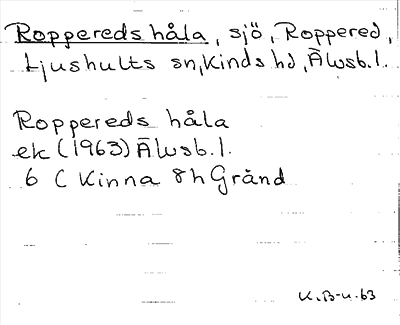 Roppereds håla, sjö, Roppered,
Ljushults sn, Kinds hd, Älvsb. l.
Roppereds håla
ek (1963) Älvsb. l.
6 C Kinna 8h Grånd
K.B-u. 63